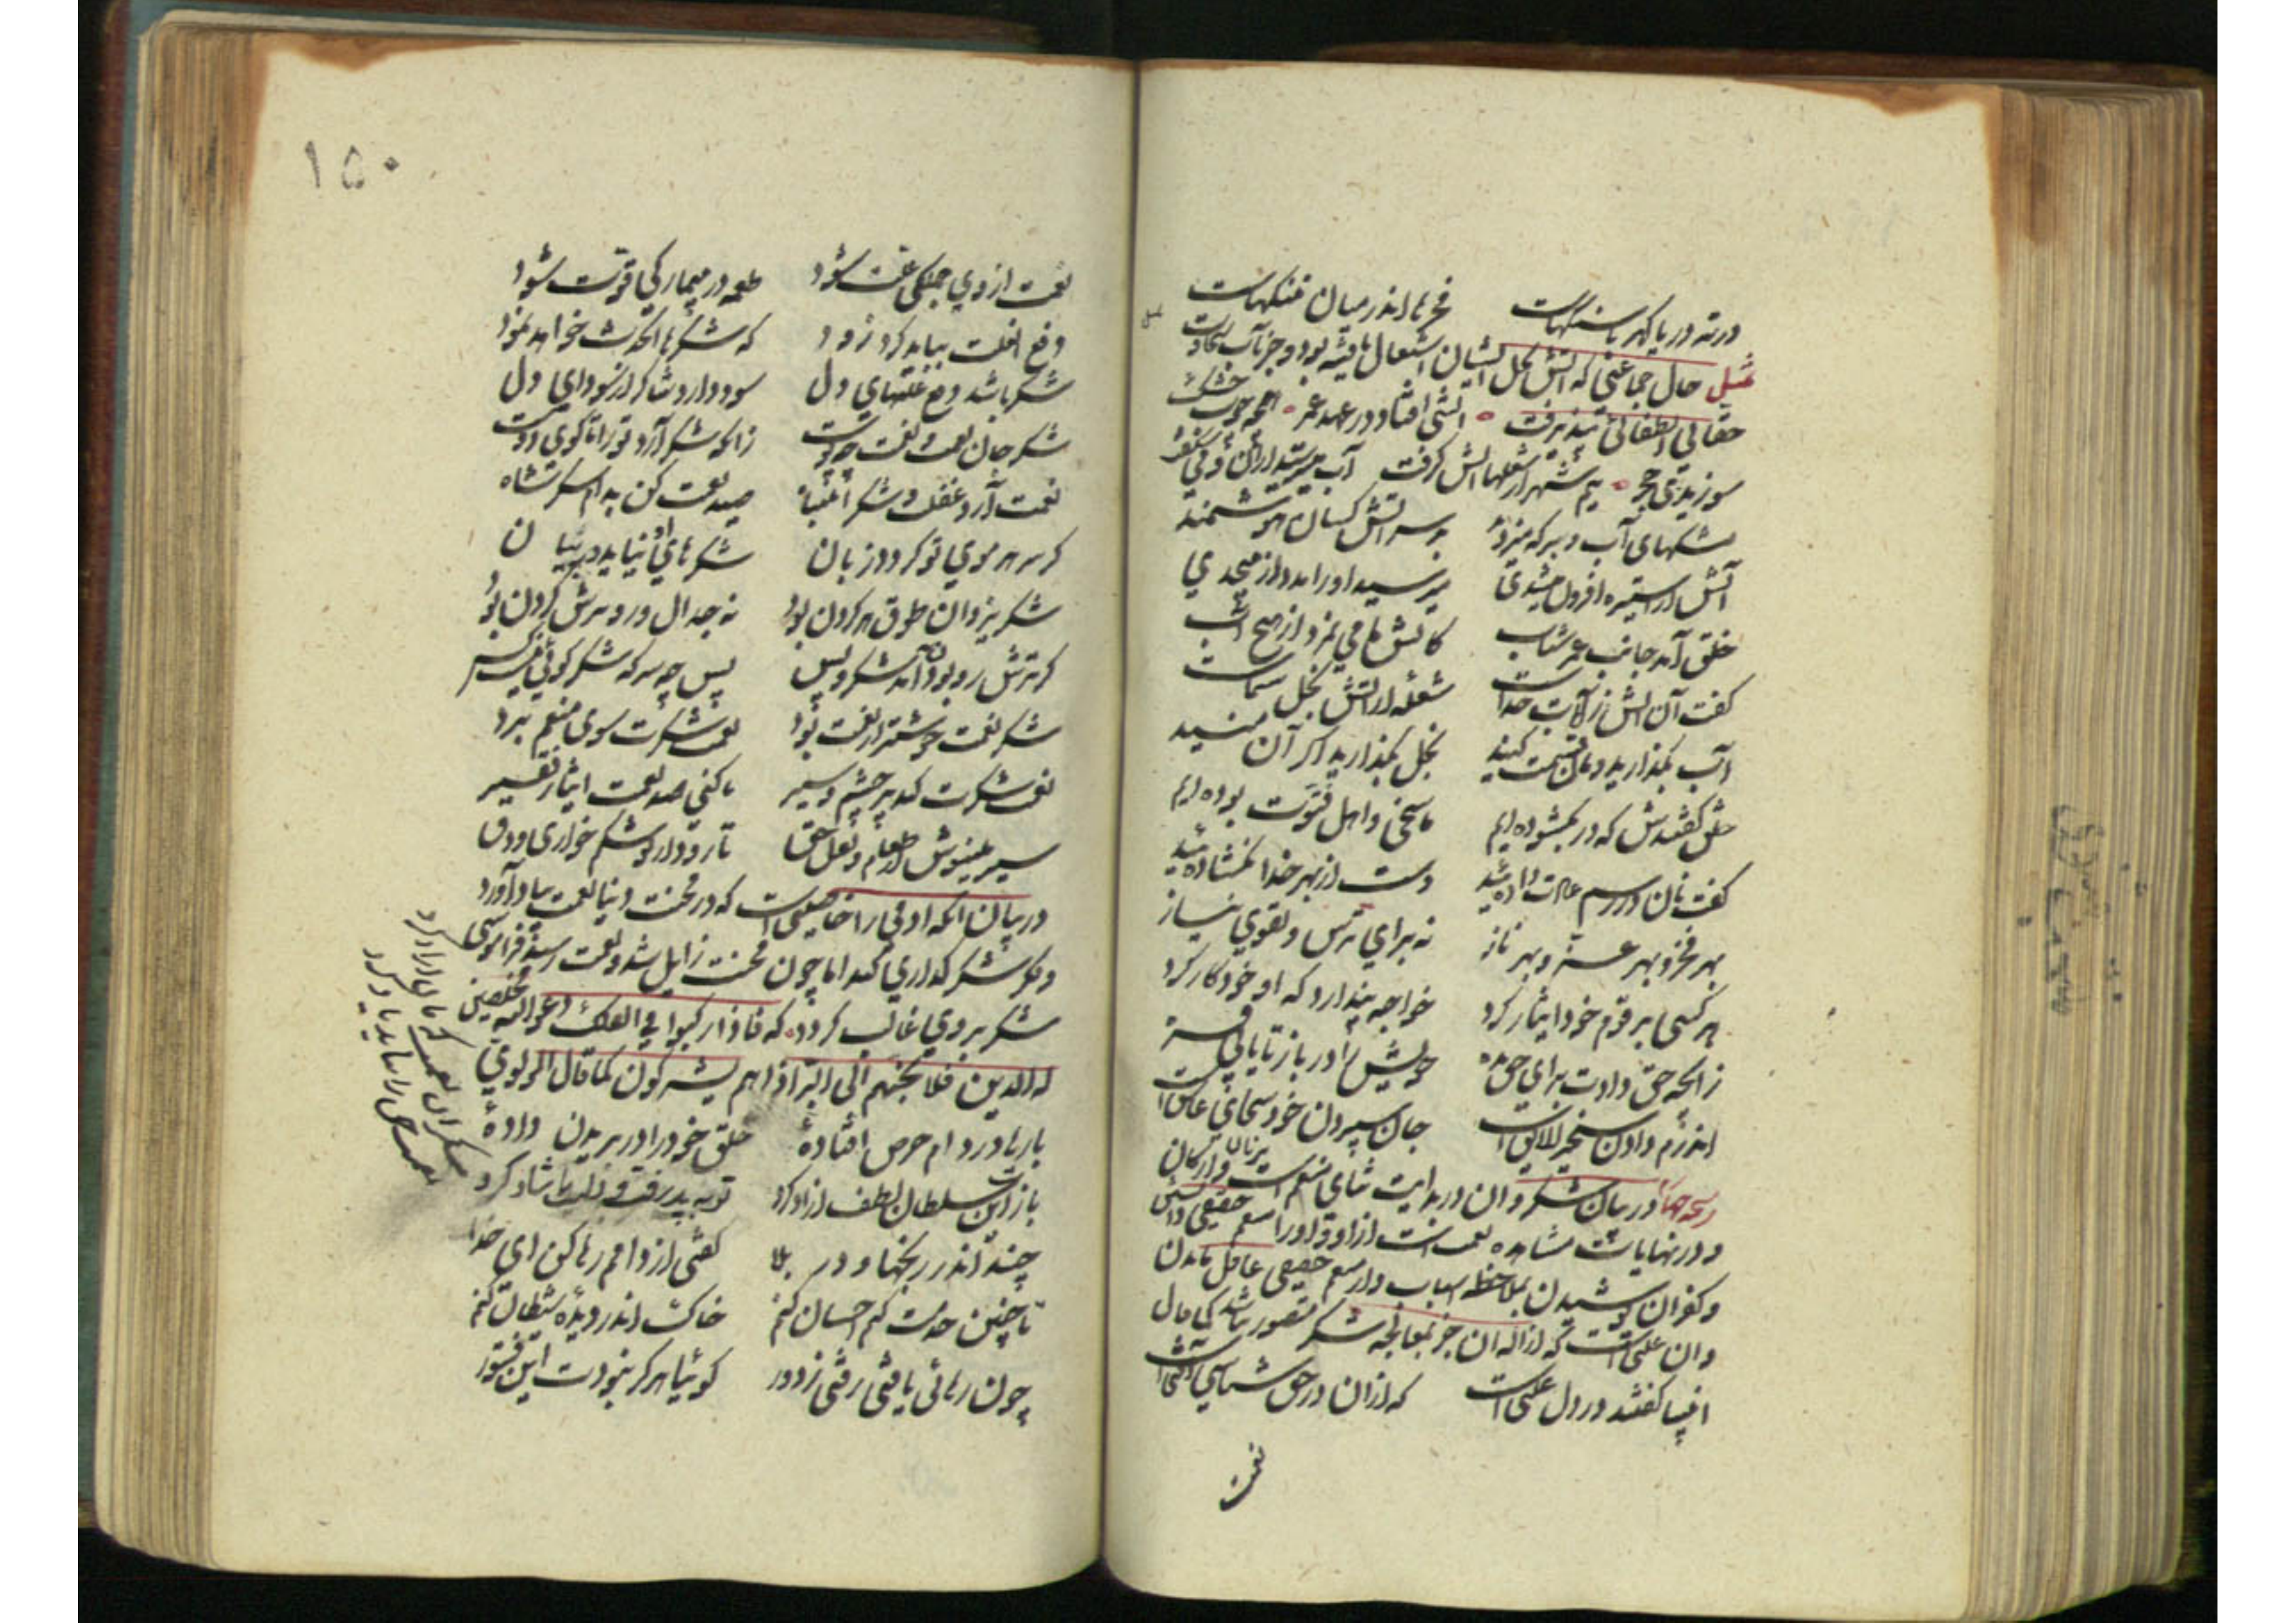 در ته دریا گهر با سنگهاست فخرها اندر میان ننگهاست
تمثیل حال جماعتی که آتش بخل ایشان اشتعال یافته بود و جز بآب سخاوت
حقانی انطفائی نپذیرفت ۰ آتشی افتاد در عهد عمر ۰ همچو چوب خشک
سوزیدی حجر ۰ نیم شهر از شعلها آتش گرفت آب میترسید ازان و میشگفت
مشکهای آب و سرکه میزدند بر سر آتش کسان هوشمند
آتش از استیزه افزون میشدی میرسید او را مدد از بیحدی
خلق آمد جانب عمر شتاب کاتش ما می نمیرد از هیچ آب
گفت آن آتش ز آیات خداست شعله از آتش بخل شماست
آب بگذارید و نان قسمت کنید بخل بگذارید اگر آن منید
خلق گفتندش که در بگشوده ایم ما سخی و اهل فتوت بوده ایم
گفت نان در رسم عادت داده اید دست از بهر خدا نگشاده اید
بهر فخر و بهر عز و بهر ناز نه برای ترس و تقوی و نیاز
هر کسی بر قوم خود ایثار کرد خواجه پندارد که او خود کار کرد
زانکه حق دادت برای حق بده خویش را در باز تا یابی فره
اندرم دادن سخی را لایق است جان سپردن خود سخای عاشق است
رشحه در بیان شکر و ان در بدایت ثنای منعم است بزبان و ارکان
و در نهایات مشاهده نعمت است ازو و او را منعم حقیقی دانستن
و کفران پوشیدن بملاحظه اسباب و از منعم حقیقی غافل ماندن
و ان علتی است که ازاله ان جز بمعالجه شکر متصور نباشد کما قال
انبیا گفتند در دل علتی است که ازان در حق شناسی آفتی است
نعمت
۱۵۰
نعمت از وی جملگی علت شود طعمه در بیمار کی قوت شود
دفع علت بباید کرد زود که شکر با حدث خواهد نمود
شکر باشد دفع علتهای دل سود دارد شاکر از سودای دل
شکر جان نعمت و نعمت چو پوست زانکه شکر آرد تو را تا کوی دوست
نعمت آرد غفلت و شکر انتباه صید نعمت کن بدام شکر شاه
گر سر هر موی تو گردد زبان شکرهای او نیاید در بیان
شکر یزدان طوق هر گردن بود نه جدال و رو ترش کردن بود
گر ترش رو بودن آمد شکر و بس پس چو سرکه شکر گوئی نیست کس
شکر نعمت خوشتر از نعمت بود نعمت شکرت سوی منعم برد
نعمت شکرت کند پر چشم و سیر تا کنی صد نعمت ایثار فقیر
سیر مینوش از طعام و نقل حق تا رود از تو شکم خواری و دق
در بیان انکه ادمی را خاصیتی است که در محنت دنیا نعمت بیاد آورد
و ذکر شکر گذاری کند اما چون محنت زایل شد و نعمت رسید فراموشی
شکر بر وی غالب گردد ۰ که فاذا رکبوا فی الفلک دعوا الله مخلصین
له الدین فلما نجیهم الی البر اذا هم یشرکون کما قال المولوی
بارها در دام حرص افتاده حلق خود را در بریدن داده
بازت آن سلطان لطف ازاد کرد توبه پذیرفت و شما شاد کرد
چند اندر رنجها و در بلا گفتی از دامم رها کن ای خدا
تا چنین خدمت کنم احسان کنم خاک اندر دیده شیطان کنم
چون رهائی یافتی رفتی ز دور گوئیا هرگز نبودت این فتور